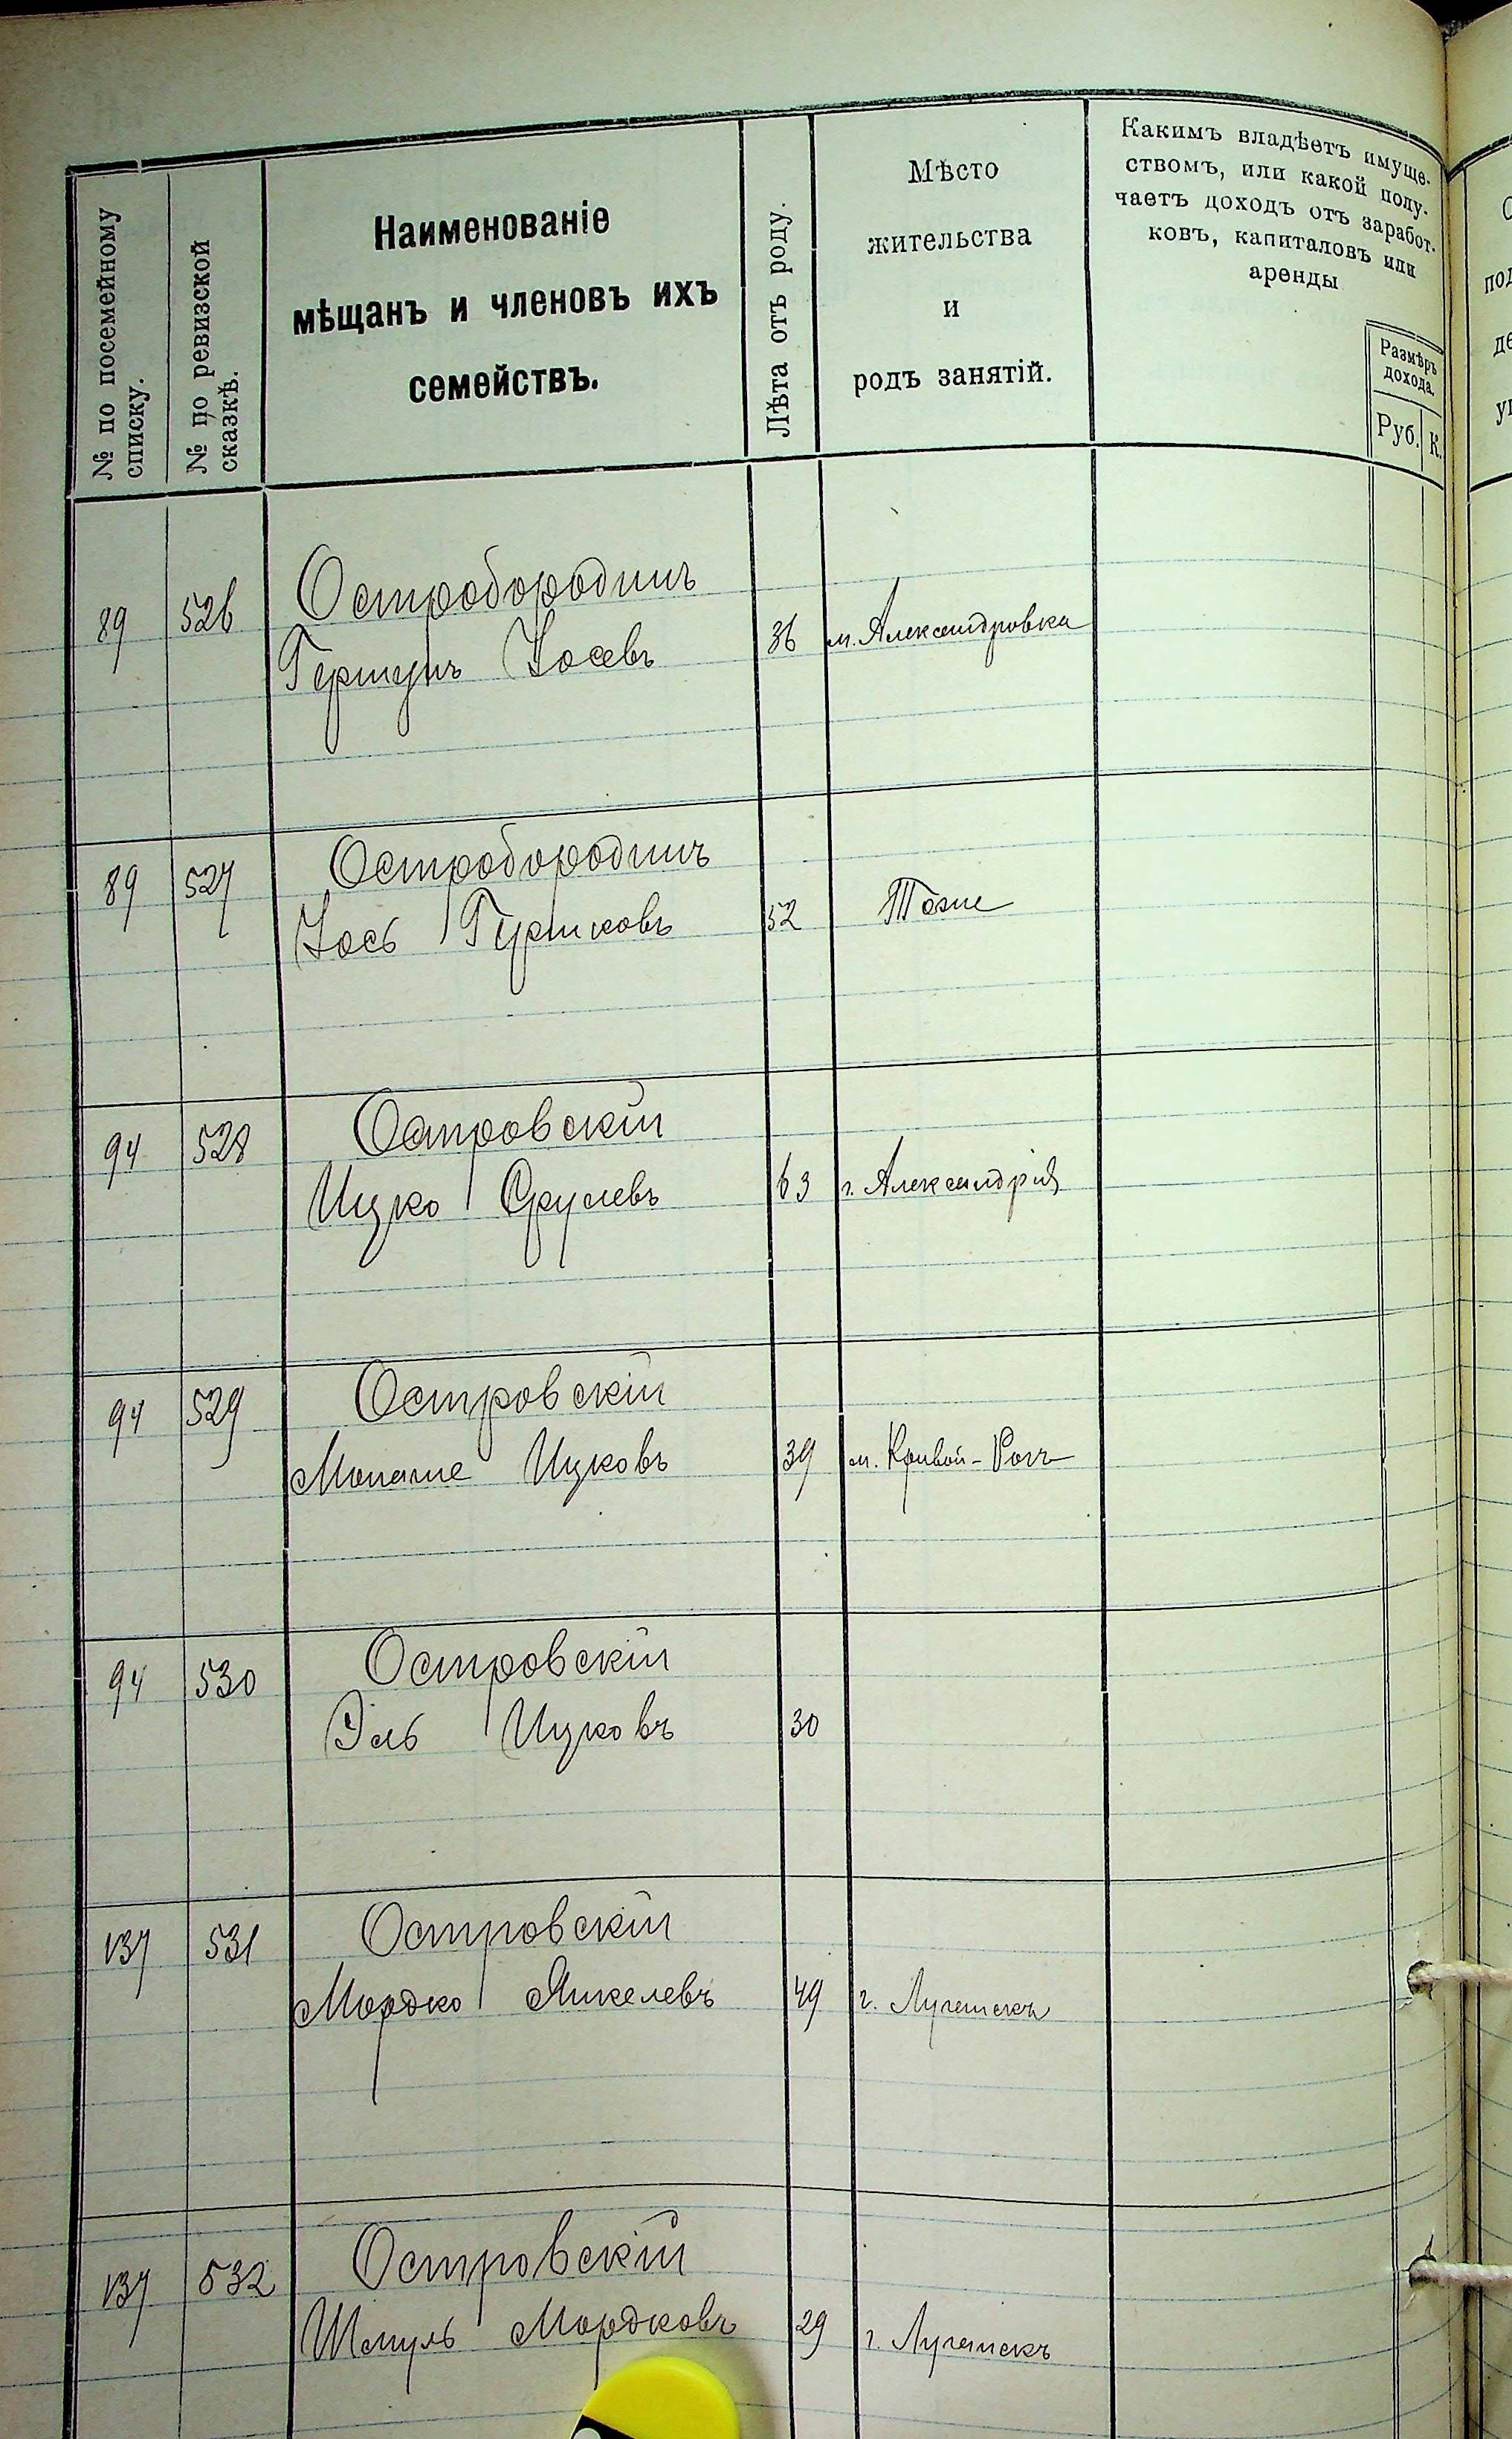 № по посемейному
списку.
№ по ревизской
сказкѣ.
Наименованіе
мѣщанъ и членовъ ихъ
семействъ.
Лѣта отъ роду.
Мѣсто
жительства
и
родъ занятій.
Какимъ владѣетъ имуще-
ствомъ, или какой полу-
чаетъ доходъ отъ заработ-
ковъ, капиталовъ или
аренды
Размѣръ
дохода.
Руб. К.
Остробородинъ
89 526 Гершунъ Іосевъ 36 м. Александровка
Остробородинъ
89 527 Іось Гершковъ 52 Тоже
Островскій
94 528 Ицко Срулевъ 63 г. Александрія
Островскій
94 529 Монаше Ицковъ 39 м. Кривой-Рогъ
Островскій
94 530 Эль Ицковъ 30
Островскій
137 531 Мордко Янкелевъ 49 г. Луганскъ
Островскій
137 532 Шмуль Мордковъ 29 г. Луганскъ